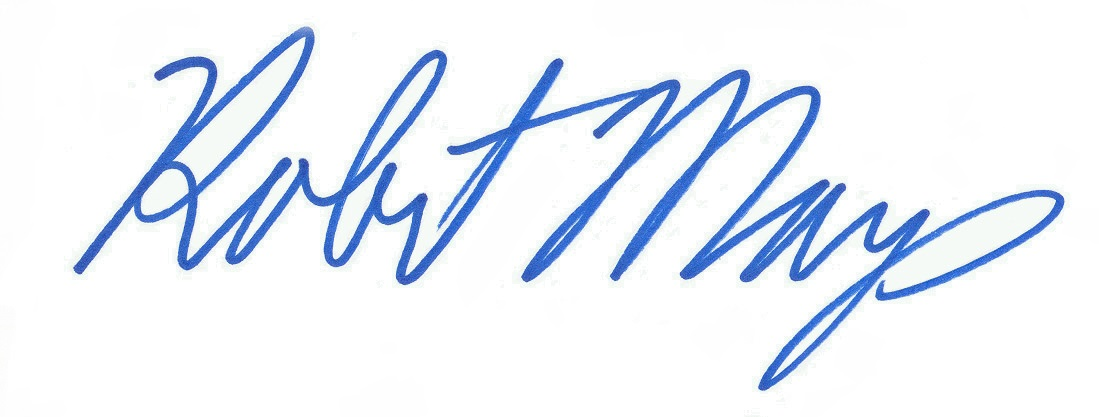 Robert Mays